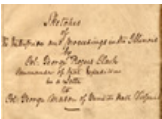 Sketches
of
The Enterprises and Proceedings in the Illinois
by
Col. George Rogers Clark
Commander of that Expedition
in a Letter
to
Col. George Mason of Gunston Hall